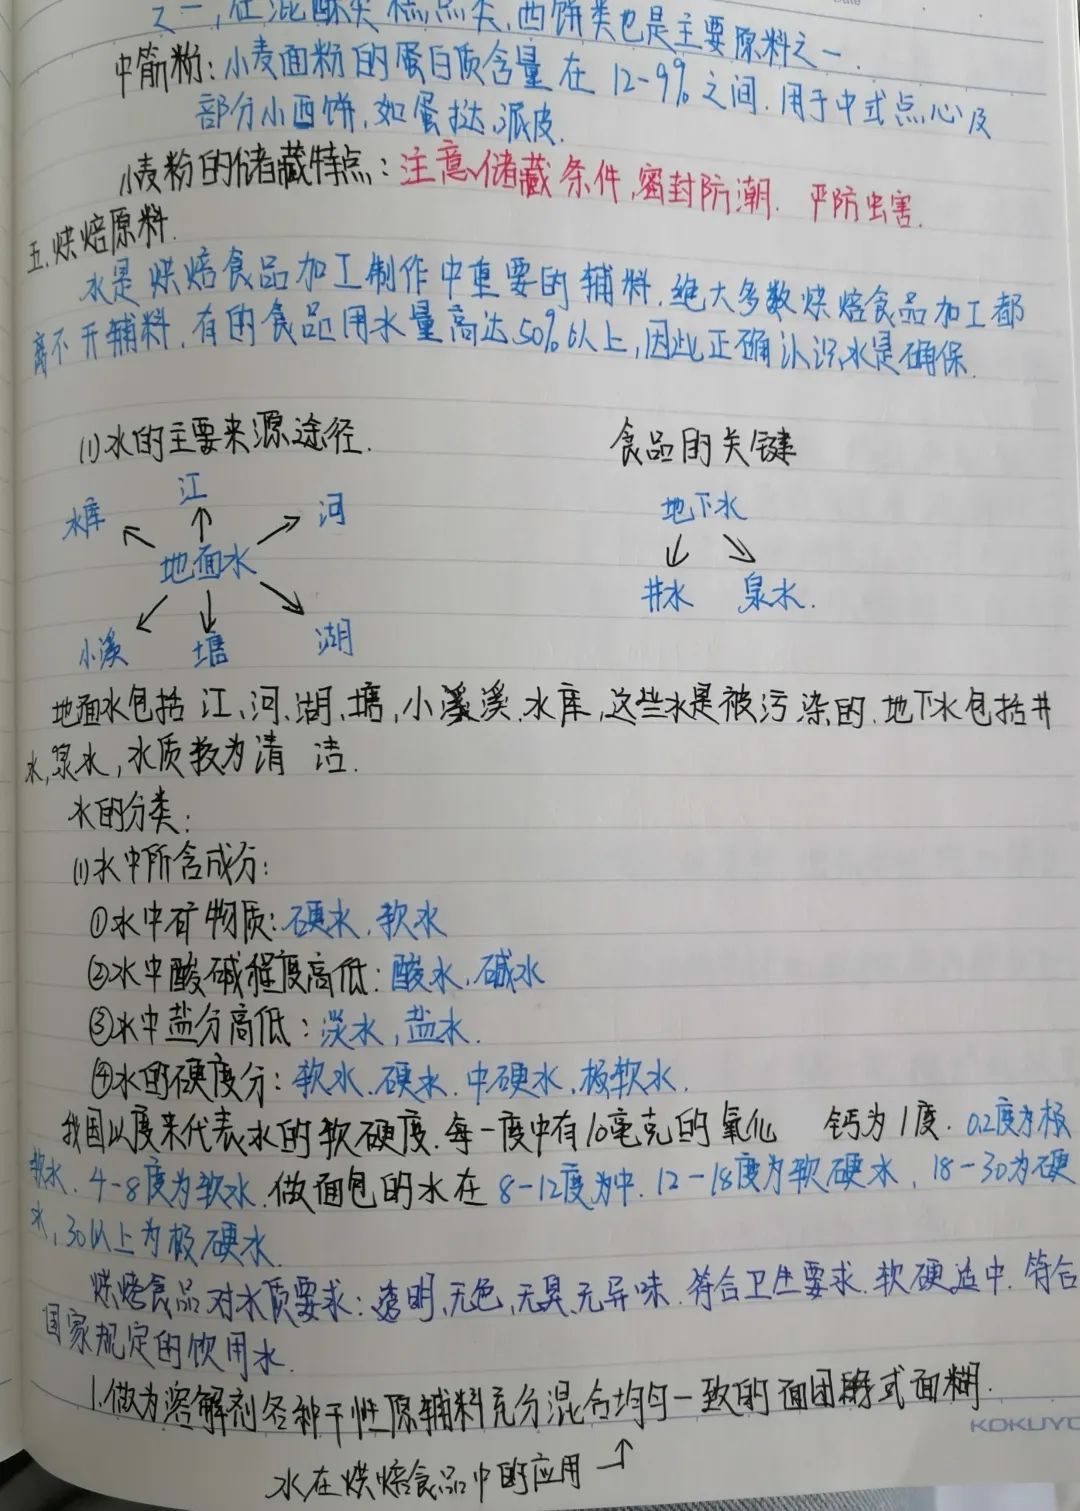 之一,在混酥类糕点类,西饼类也是主要原料之一.
中筋粉:小麦面粉的蛋白质含量在12-9%之间.用于中式点心及
部分小西饼,如蛋挞、派皮.
小麦粉的储藏特点:注意储藏条件,密封防潮.严防虫害.
五.烘焙原料.
水是烘焙食品加工制作中重要的辅料.绝大多数烘焙食品加工都
离不开辅料.有的食品用水量高达50%以上,因此正确认识水是确保.
(1)水的主要来源途径. 食品的关键
江
水库 河 地下水
地面水
井水 泉水.
小溪 塘 湖
地面水包括江、河、湖、塘,小溪.水库,这些水是被污染的.地下水包括井
水,泉水,水质较为清 洁.
水的分类:
(1)水中所含成分:
①水中矿物质:硬水、软水
②水中酸碱程度高低:酸水、碱水
③水中盐分高低:淡水,盐水.
④水的硬度分:软水.硬水.中硬水.极软水.
我国以度来代表水的软硬度.每一度中有10毫克的氧化 钙为1度.02度为极
软水.4-8度为软水.做面包的水在8-12度为中.12-18度为软硬水,18-30为硬
水,30以上为极硬水.
烘烤食品对水质要求:透明、无色,无臭、无异味.符合卫生要求.软硬适中.符合
国家规定的饮用水.
1.做为溶解剂各种干性原辅料充分混合均匀一致的面团或式面糊.
水在烘焙食品中的应用
KOKUYO